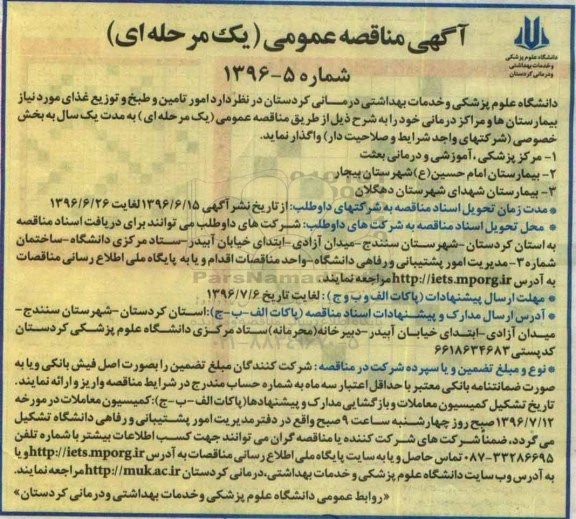 آگهی مناقصه عمومی (یک مرحله ای)
شماره ۵-۱۳۹۶
دانشگاه علوم پزشکی
وخدمات بهداشتی
ودرمانی کردستان
دانشگاه علوم پزشکی وخدمات بهداشتی درمـانی کردستان در نظر دارد امور تامین و طبخ و توزیع غذای مورد نیاز
بیمارستان ها و مراکز درمانی خود را به شرح ذیل از طریق مناقصه عمومی (یک مرحله ای) به مدت یک سال به بخش
خصوصی (شرکتهای واجد شرایط و صلاحیت دار) واگذار نماید.
۱- مرکز پزشکی، آموزشی و درمانی بعثت
۲- بیمارستان امام حسین(ع) شهرستان بیجار
۳- بیمارستان شهدای شهرستان دهگلان
* مدت زمان تحویل اسناد مناقصه به شرکتهای داوطلب: از تاریخ نشر آگهی ۱۳۹۶/۶/۱۵ لغایت ۱۳۹۶/۶/۲۶
* محل تحویل اسناد مناقصه به شرکت های داوطلب: شرکت های داوطلب می توانند برای دریافت اسناد مناقصه
به استان کردستان -شهرستان سنندج-میدان آزادی-ابتدای خیابان آبیدر-ستاد مرکزی دانشگاه-ساختمان
شماره ۳-مدیریت امور پشتیبانی و رفاهی دانشگاه-واحد مناقصات اقدام و یا به پایگاه ملی اطلاع رسانی مناقصات
به آدرس http://iets.mporg.ir مراجعه نمایند.
* مهلت ارسال پیشنهادات (پاکات الف و ب و ج): لغایت تاریخ ۱۳۹۶/۷/۶
* آدرس ارسال مدارک و پیشـنهادات اسناد مناقصه (پاکات الف-ب-ج): اسـتان کردستان-شهرستان سنندج-
میـدان آزادی-ابتدای خیابـان آبیدر-دبیرخانه (محرمانه) ستاد مرکزی دانشـگاه علوم پزشـکی کردسـتان
کدپستی ۶۶۱۸۶۳۴۶۸۳
* نوع و مبلغ تضمین و یا سپرده شرکت در مناقصه: شرکت کنندگان مبلغ تضمین را بصورت اصل فیش بانکی ویا به
صورت ضمانتنامه بانکی معتبر با حداقل اعتبار سه ماه به شماره حساب مندرج در شرایط مناقصه واریز و ارائه نمایند.
تاریخ تشکیل کمیسیون معاملات و بازگشایی مدارک و پیشنهادها (پاکات الف-ب-ج): کمیسیون معاملات در مورخه
۱۳۹۶/۷/۱۲ صبح روز چهارشـنبه ساعت ۹ صبح واقع در دفتر مدیریت امور پشـتیبانی و رفاهی دانشگاه تشکیل
می گردد، ضمناً شرکت های شرکت کننده یا مناقصه گران می توانند جهت کسب اطلاعات بیشتر با شماره تلفن
۰۸۷-۳۳۲۸۶۶۹۵ تماس حاصل و یا به سایت پایگاه ملی اطلاع رسانی مناقصات به آدرس http://iets.mporg.ir و یا
به آدرس وب سایت دانشگاه علوم پزشکی و خدمات بهداشتی، درمانی کردستان http://muk.ac.ir مراجعه نمایند.
«روابط عمومی دانشگاه علوم پزشکی و خدمات بهداشتی و درمانی کردستان»